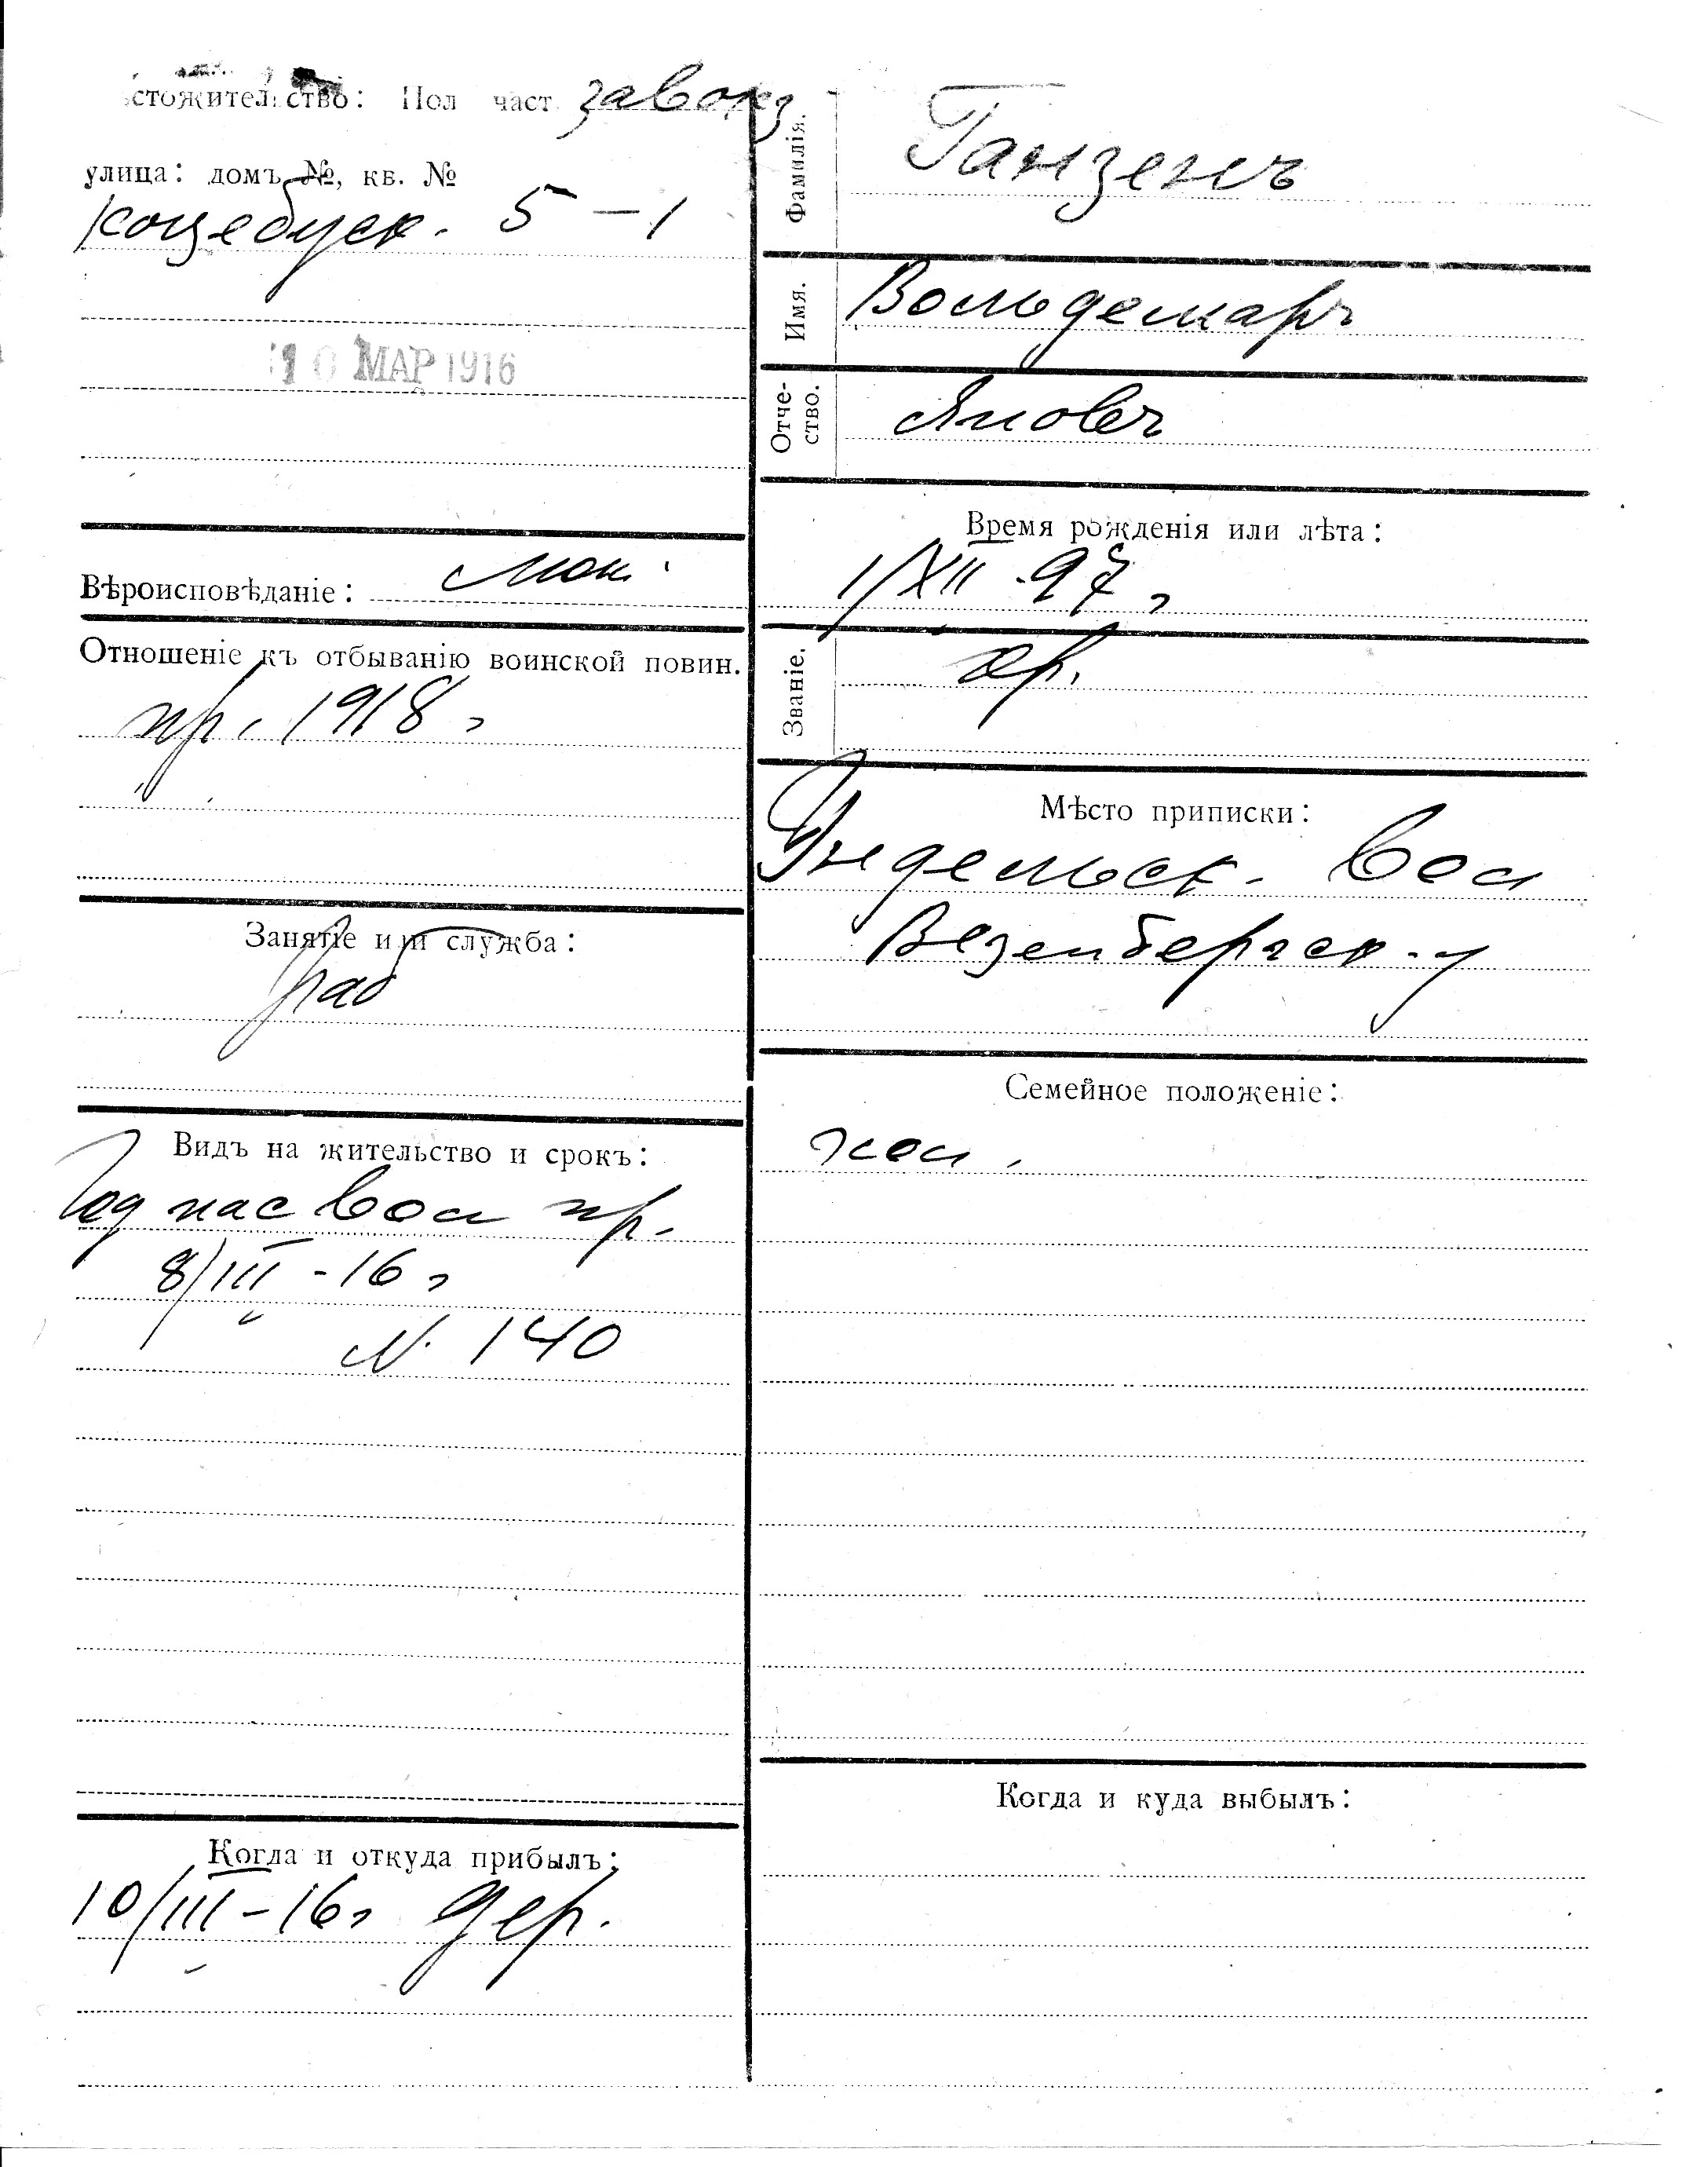 стожительство: Пол част завокз
улица: домъ №, кв. №
Коцебуск. 5 — 1
10 МАР 1916
Вѣроисповѣданіе: лют.
Отношеніе къ отбыванію воинской повин.
пр. 1918 г
Занятіе или служба:
раб
Видъ на жительство и срокъ:
Год пас вол пр.
8/III - 16 г
N. 140
Когда и откуда прибылъ:
10/III - 16 г дер.
Фамилія. Ганзенъ
Имя. Вольдемаръ
Отче-
ство. Яновъ
Время рожденія или лѣта:
1/XII 97 г
Званіе. кр.
Мѣсто приписки:
Ундельск. вол
Везенбергск. у
Семейное положеніе:
хол.
Когда и куда выбылъ: